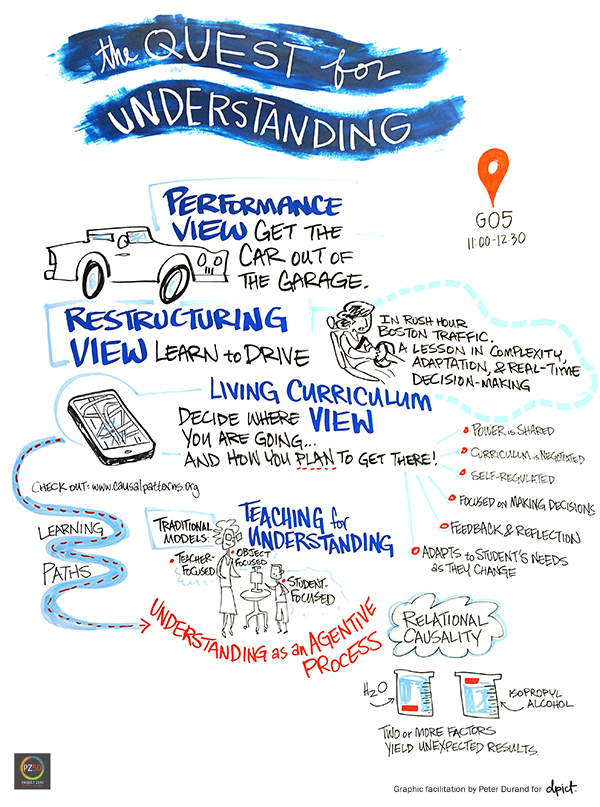 the QUEST for
UNDERSTANDING
G05
11:00-12:30
PERFORMANCE
VIEW GET THE
CAR OUT OF
THE GARAGE.
RESTRUCTURING
VIEW LEARN to DRIVE
IN RUSH HOUR
BOSTON TRAFFIC.
A LESSON IN COMPLEXITY,
ADAPTATION, & REAL-TIME
DECISION-MAKING
LIVING CURRICULUM
VIEW
DECIDE WHERE
YOU ARE GOING...
AND HOW YOU PLAN TO GET THERE!
POWER IS SHARED
CURRICULUM IS NEGOTIATED
SELF-REGULATED
FOCUSED ON MAKING DECISIONS
FEEDBACK & REFLECTION
ADAPTS to STUDENT'S NEEDS
AS THEY CHANGE
CHECK OUT: www.causalpatterns.org
LEARNING
PATHS
TEACHING for
UNDERSTANDING
TRADITIONAL
MODELS:
TEACHER-
FOCUSED
OBJECT
FOCUSED
STUDENT-
FOCUSED
UNDERSTANDING as an AGENTIVE
PROCESS
RELATIONAL
CAUSALITY
H2O
ISOPROPYL
ALCOHOL
TWO or MORE FACTORS
YIELD UNEXPECTED RESULTS.
PZ50
PROJECT ZERO
Graphic facilitation by Peter Durand for dpict.